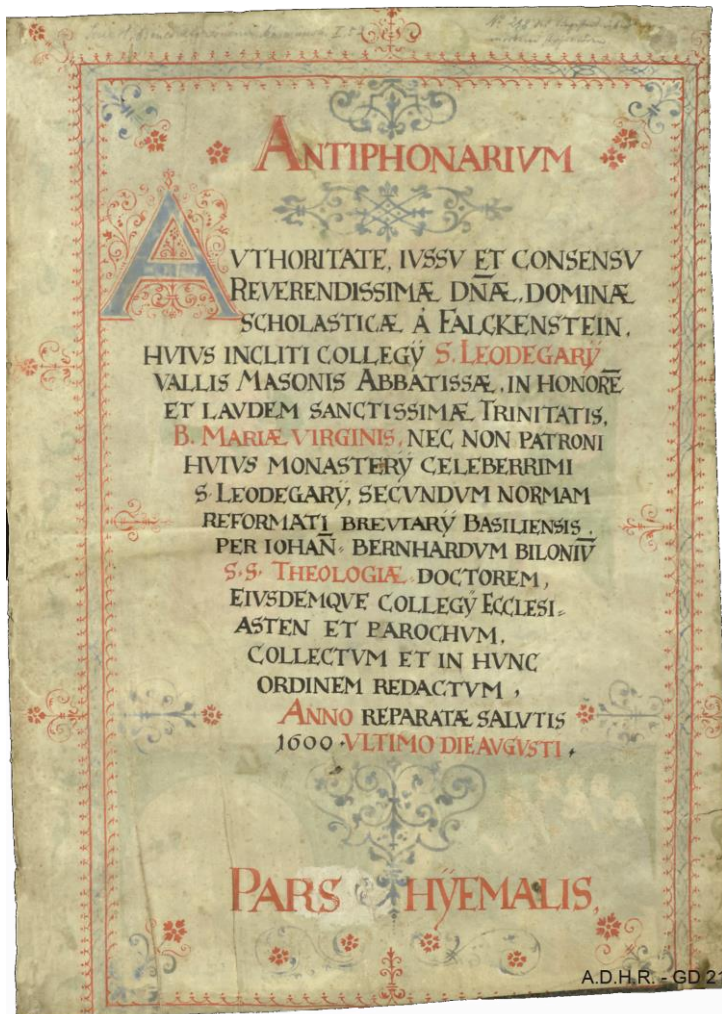 ANTIPHONARIVM
AVTHORITATE, IVSSV ET CONSENSV
REVERENDISSIMÆ DN̄Æ, DOMINÆ
SCHOLASTICÆ Á FALCKENSTEIN,
HVIVS INCLITI COLLEGŸ S. LEODEGARŸ
VALLIS MASONIS ABBATISSÆ, IN HONORĒ
ET LAVDEM SANCTISSIMÆ TRINITATIS,
B. MARIÆ VIRGINIS, NEC NON PATRONI
HVIVS MONASTERŸ CELEBERRIMI
S. LEODEGARŸ, SECVNDVM NORMAM
REFORMATI BREVIARŸ BASILIENSIS,
PER IOHAN̄= BERNHARDVM BILONIV̄
S.S. THEOLOGIÆ DOCTOREM,
EIVSDEMQVE COLLEGŸ ECCLESI=
ASTEN ET PAROCHVM,
COLLECTVM ET IN HVNC
ORDINEM REDACTVM,
ANNO REPARATÆ SALVTIS
1600 · VLTIMO DIE AVGVSTI.
PARS HŸEMALIS,
A.D.H.R. - GD 21